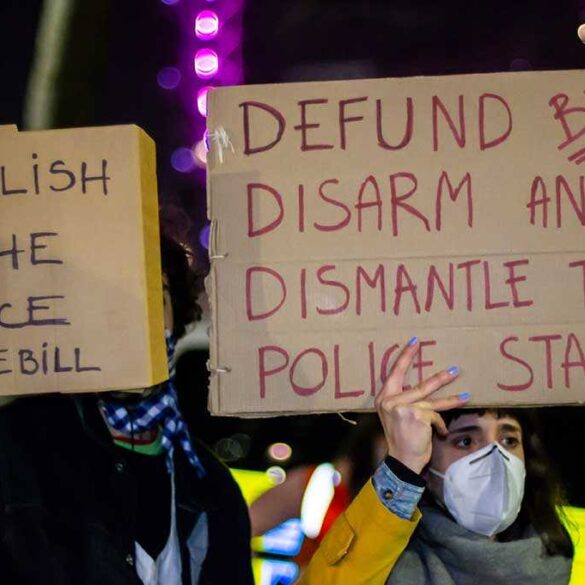 LISH
HE
CE
EBILL
DEFUND
DISARM AN
DISMANTLE T
POLICE STA